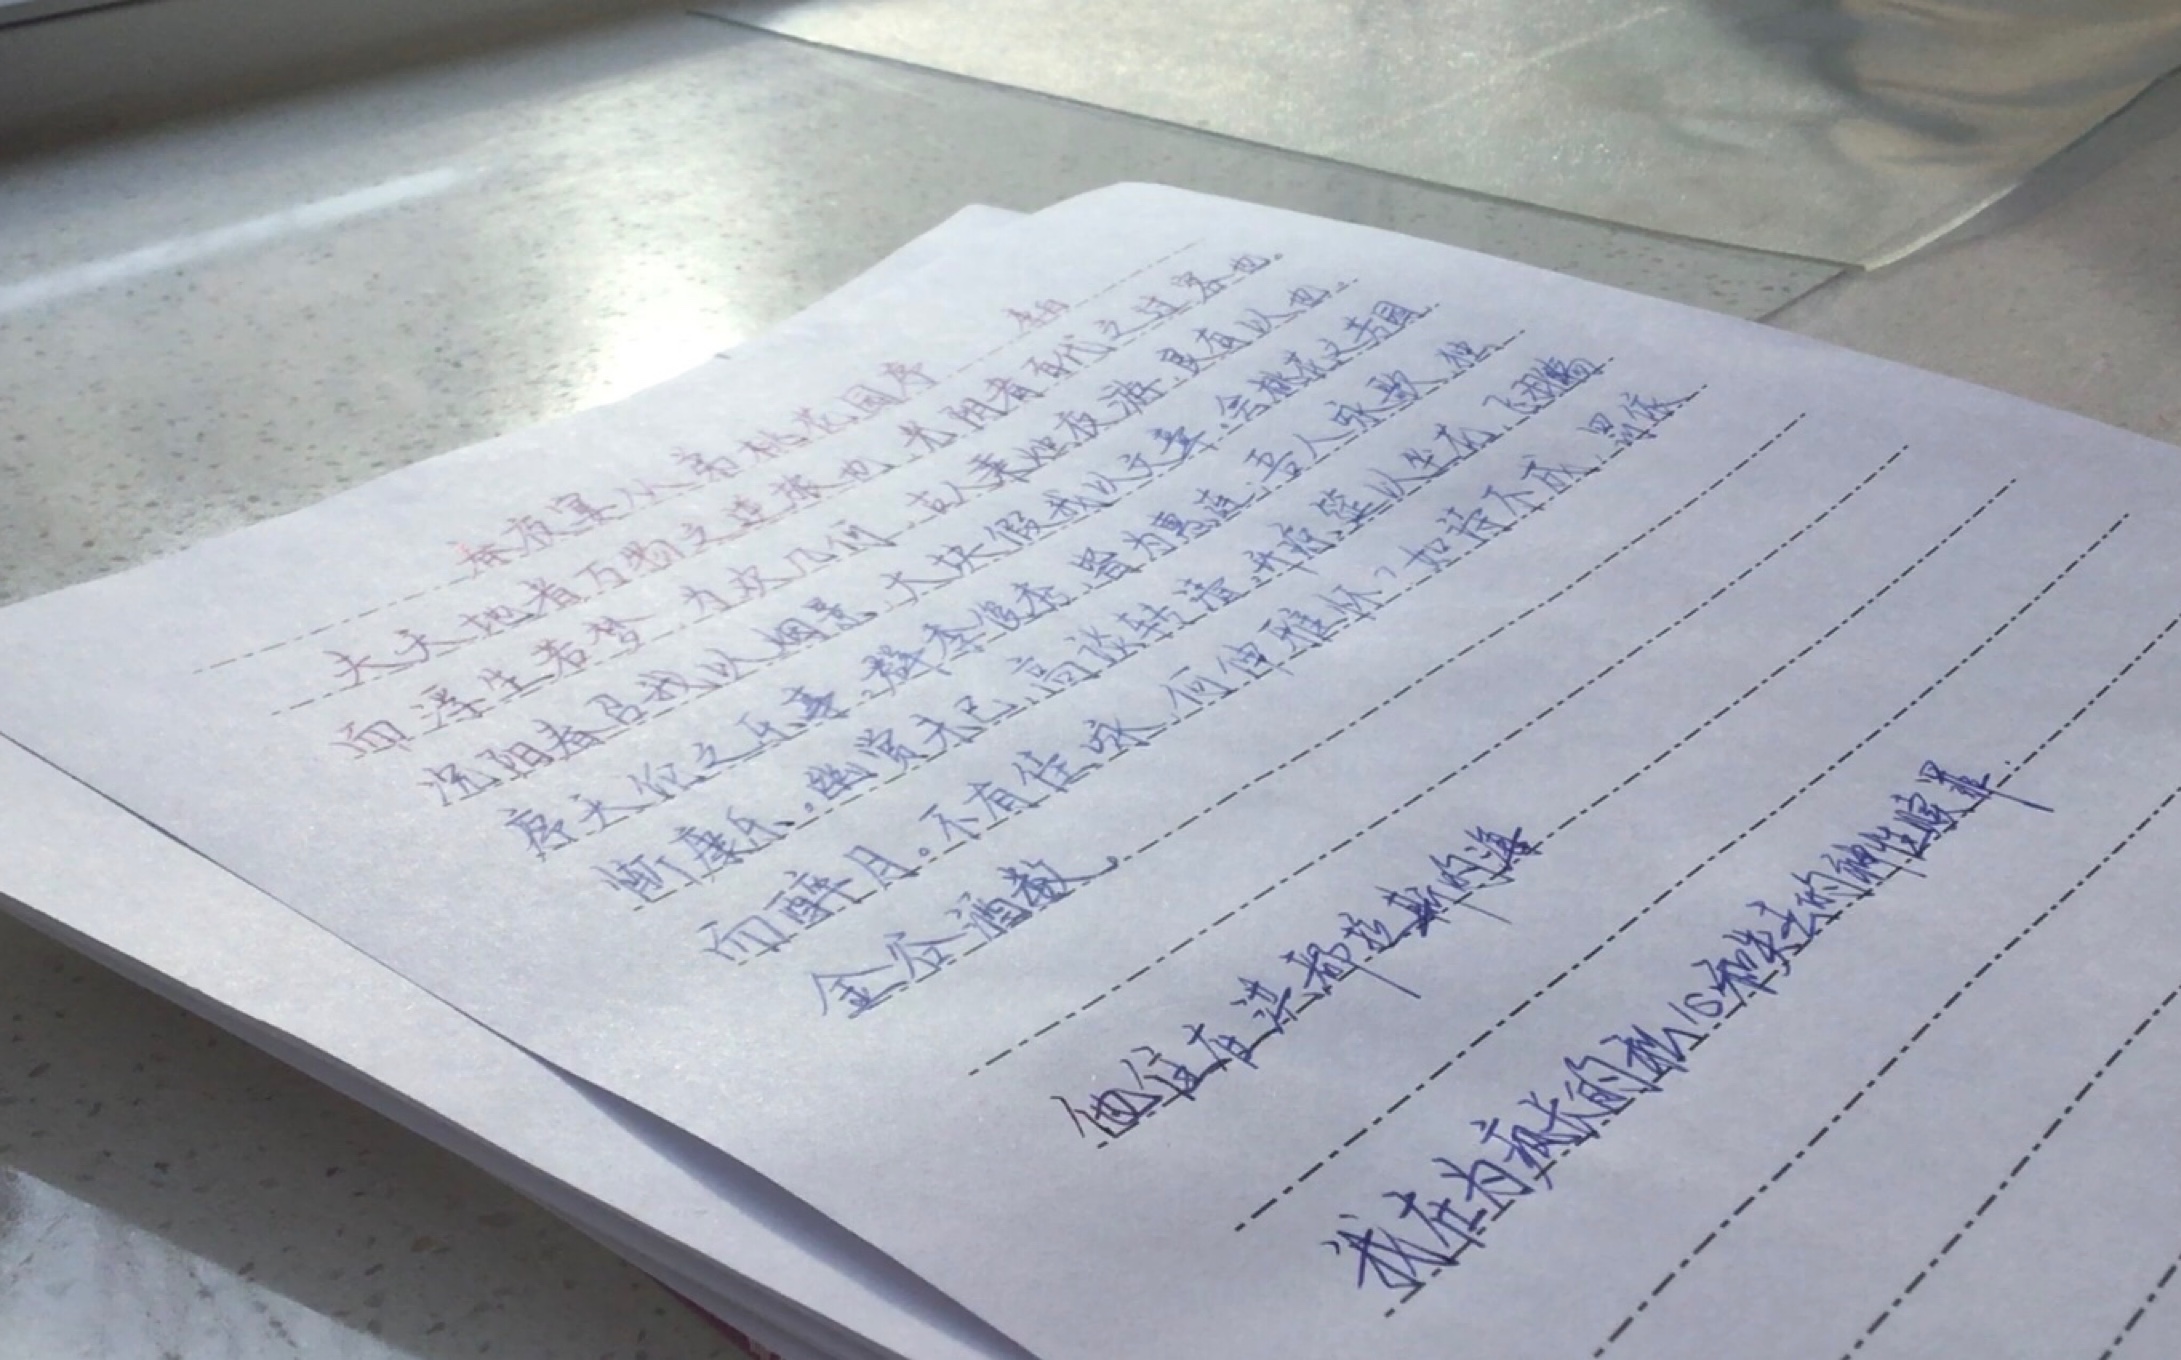 春夜宴从弟桃花园序
李白
夫天地者万物之逆旅也,光阴者百代之过客也。
而浮生若梦,为欢几何,古人秉烛夜游,良有以也。
况阳春召我以烟景,大块假我以文章,会桃花之芳园,
序天伦之乐事,群季俊秀,皆为惠连,吾人咏歌,独
惭康乐。幽赏未已,高谈转清,开琼筵以坐花,飞羽觞
而醉月。不有佳咏,何伸雅怀?如诗不成,罚依
金谷酒数。
他住在洪都拉斯的海
我在为疯长的和失去的神性赎罪